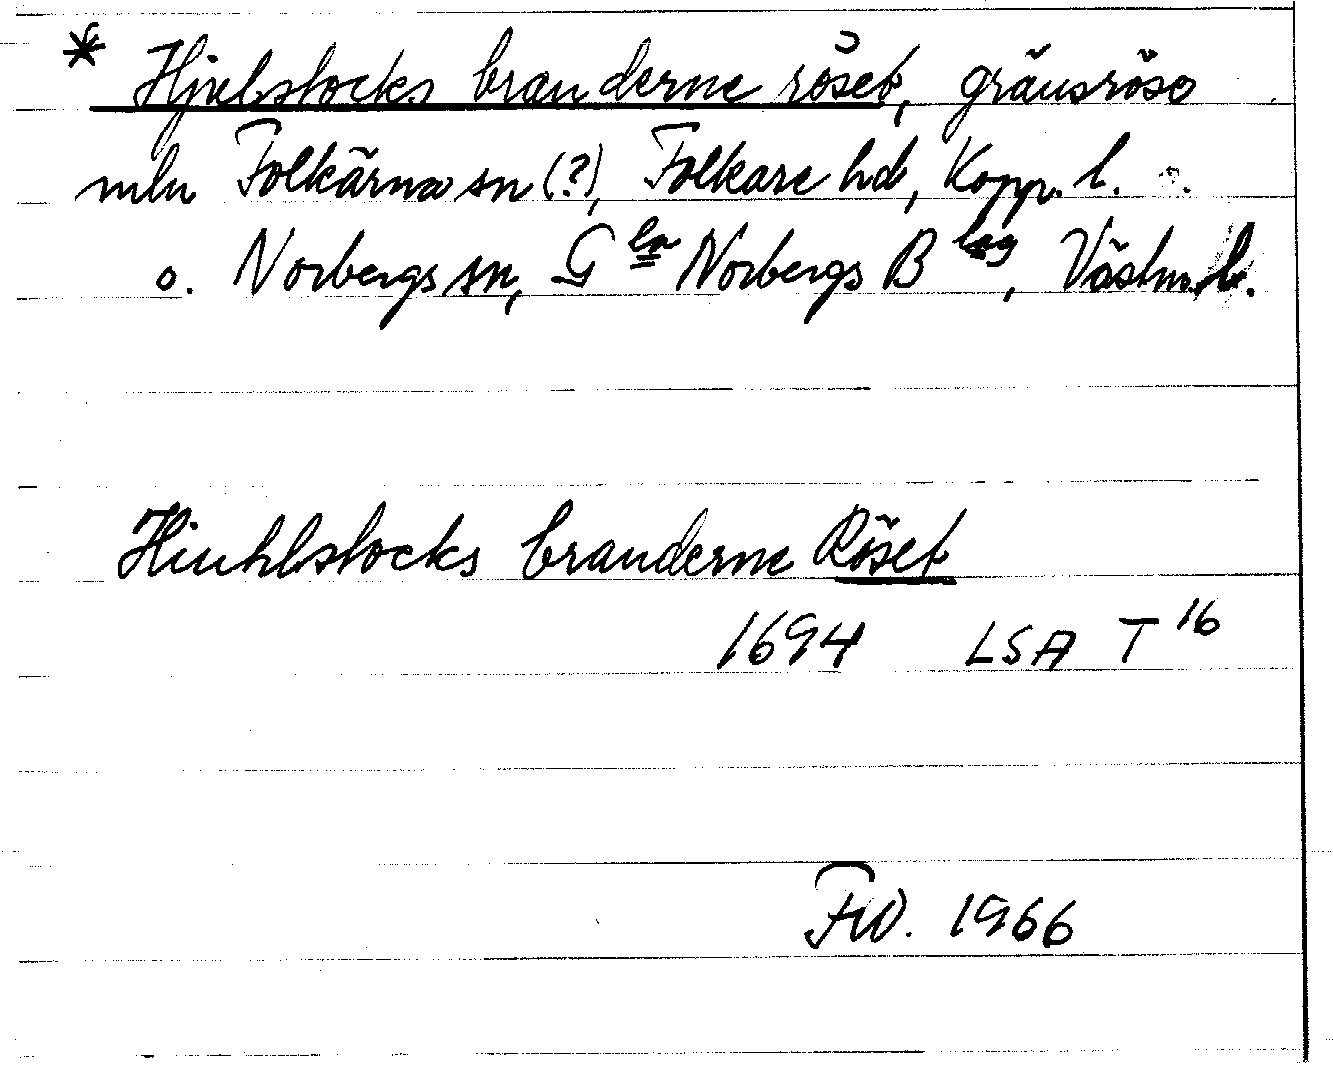 * Hjulstocks branderne röset, gränsröse
mln Folkärna sn (?), Folkare hd, Kopp. l.
o. Norbergs sn, Gla Norbergs Blag, Västm. l.
Hiuhlstocks branderne Röset
1694 LSA T 16
FW. 1966